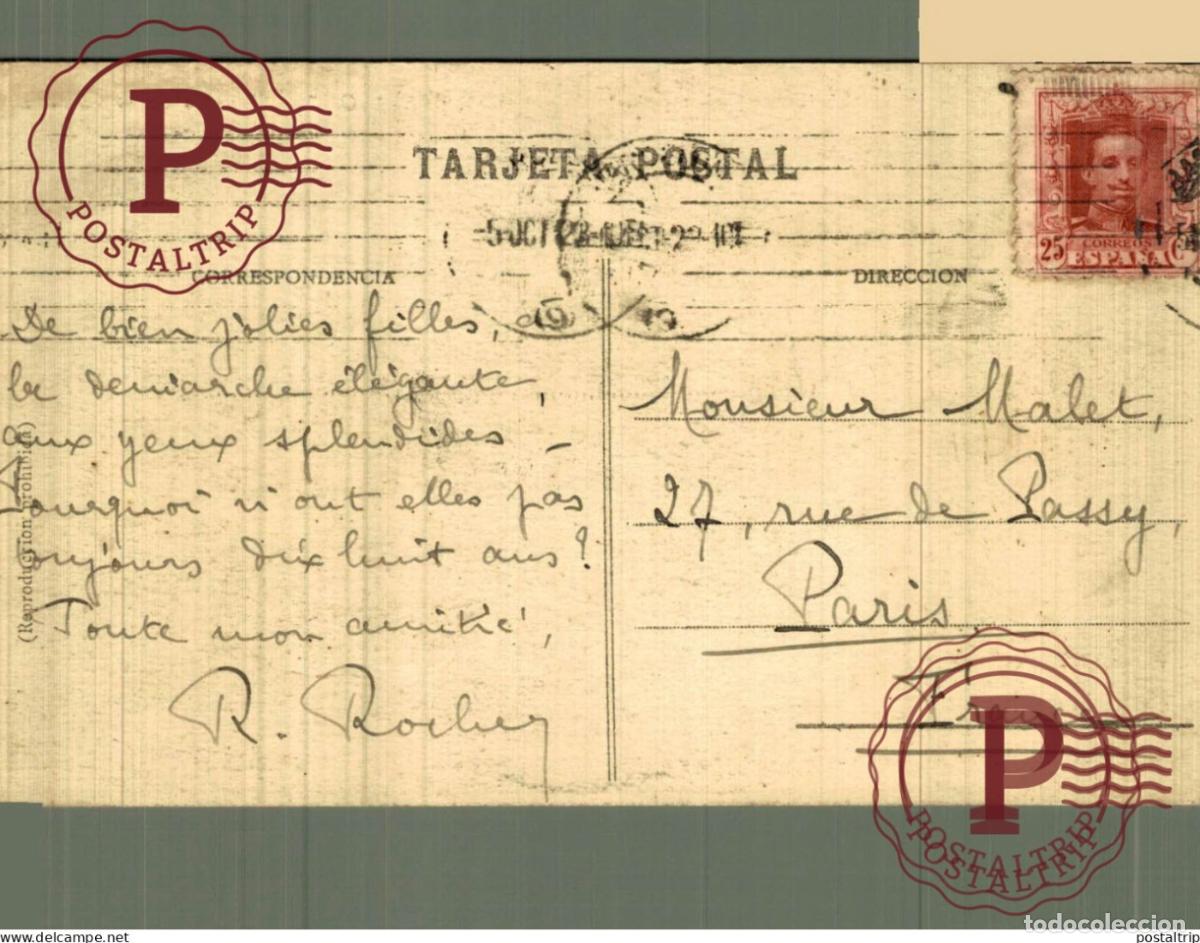 POSTALTRIP
TARJETA POSTAL
5 OCT
CORRESPONDENCIA
DIRECCION
25
CORREOS
ESPAÑA
De bien jolies filles, à
la demarche élégante,
aux yeux splendides –
Pourquoi n'ont elles pas
toujours dix huit ans ?
Toute mon amitié,
(Reproduction prohibida)
Monsieur Malet,
27, rue de Passy,
Paris
POSTALTRIP
POSTALTRIP
todocoleccion
www.delcampe.net
postaltrip